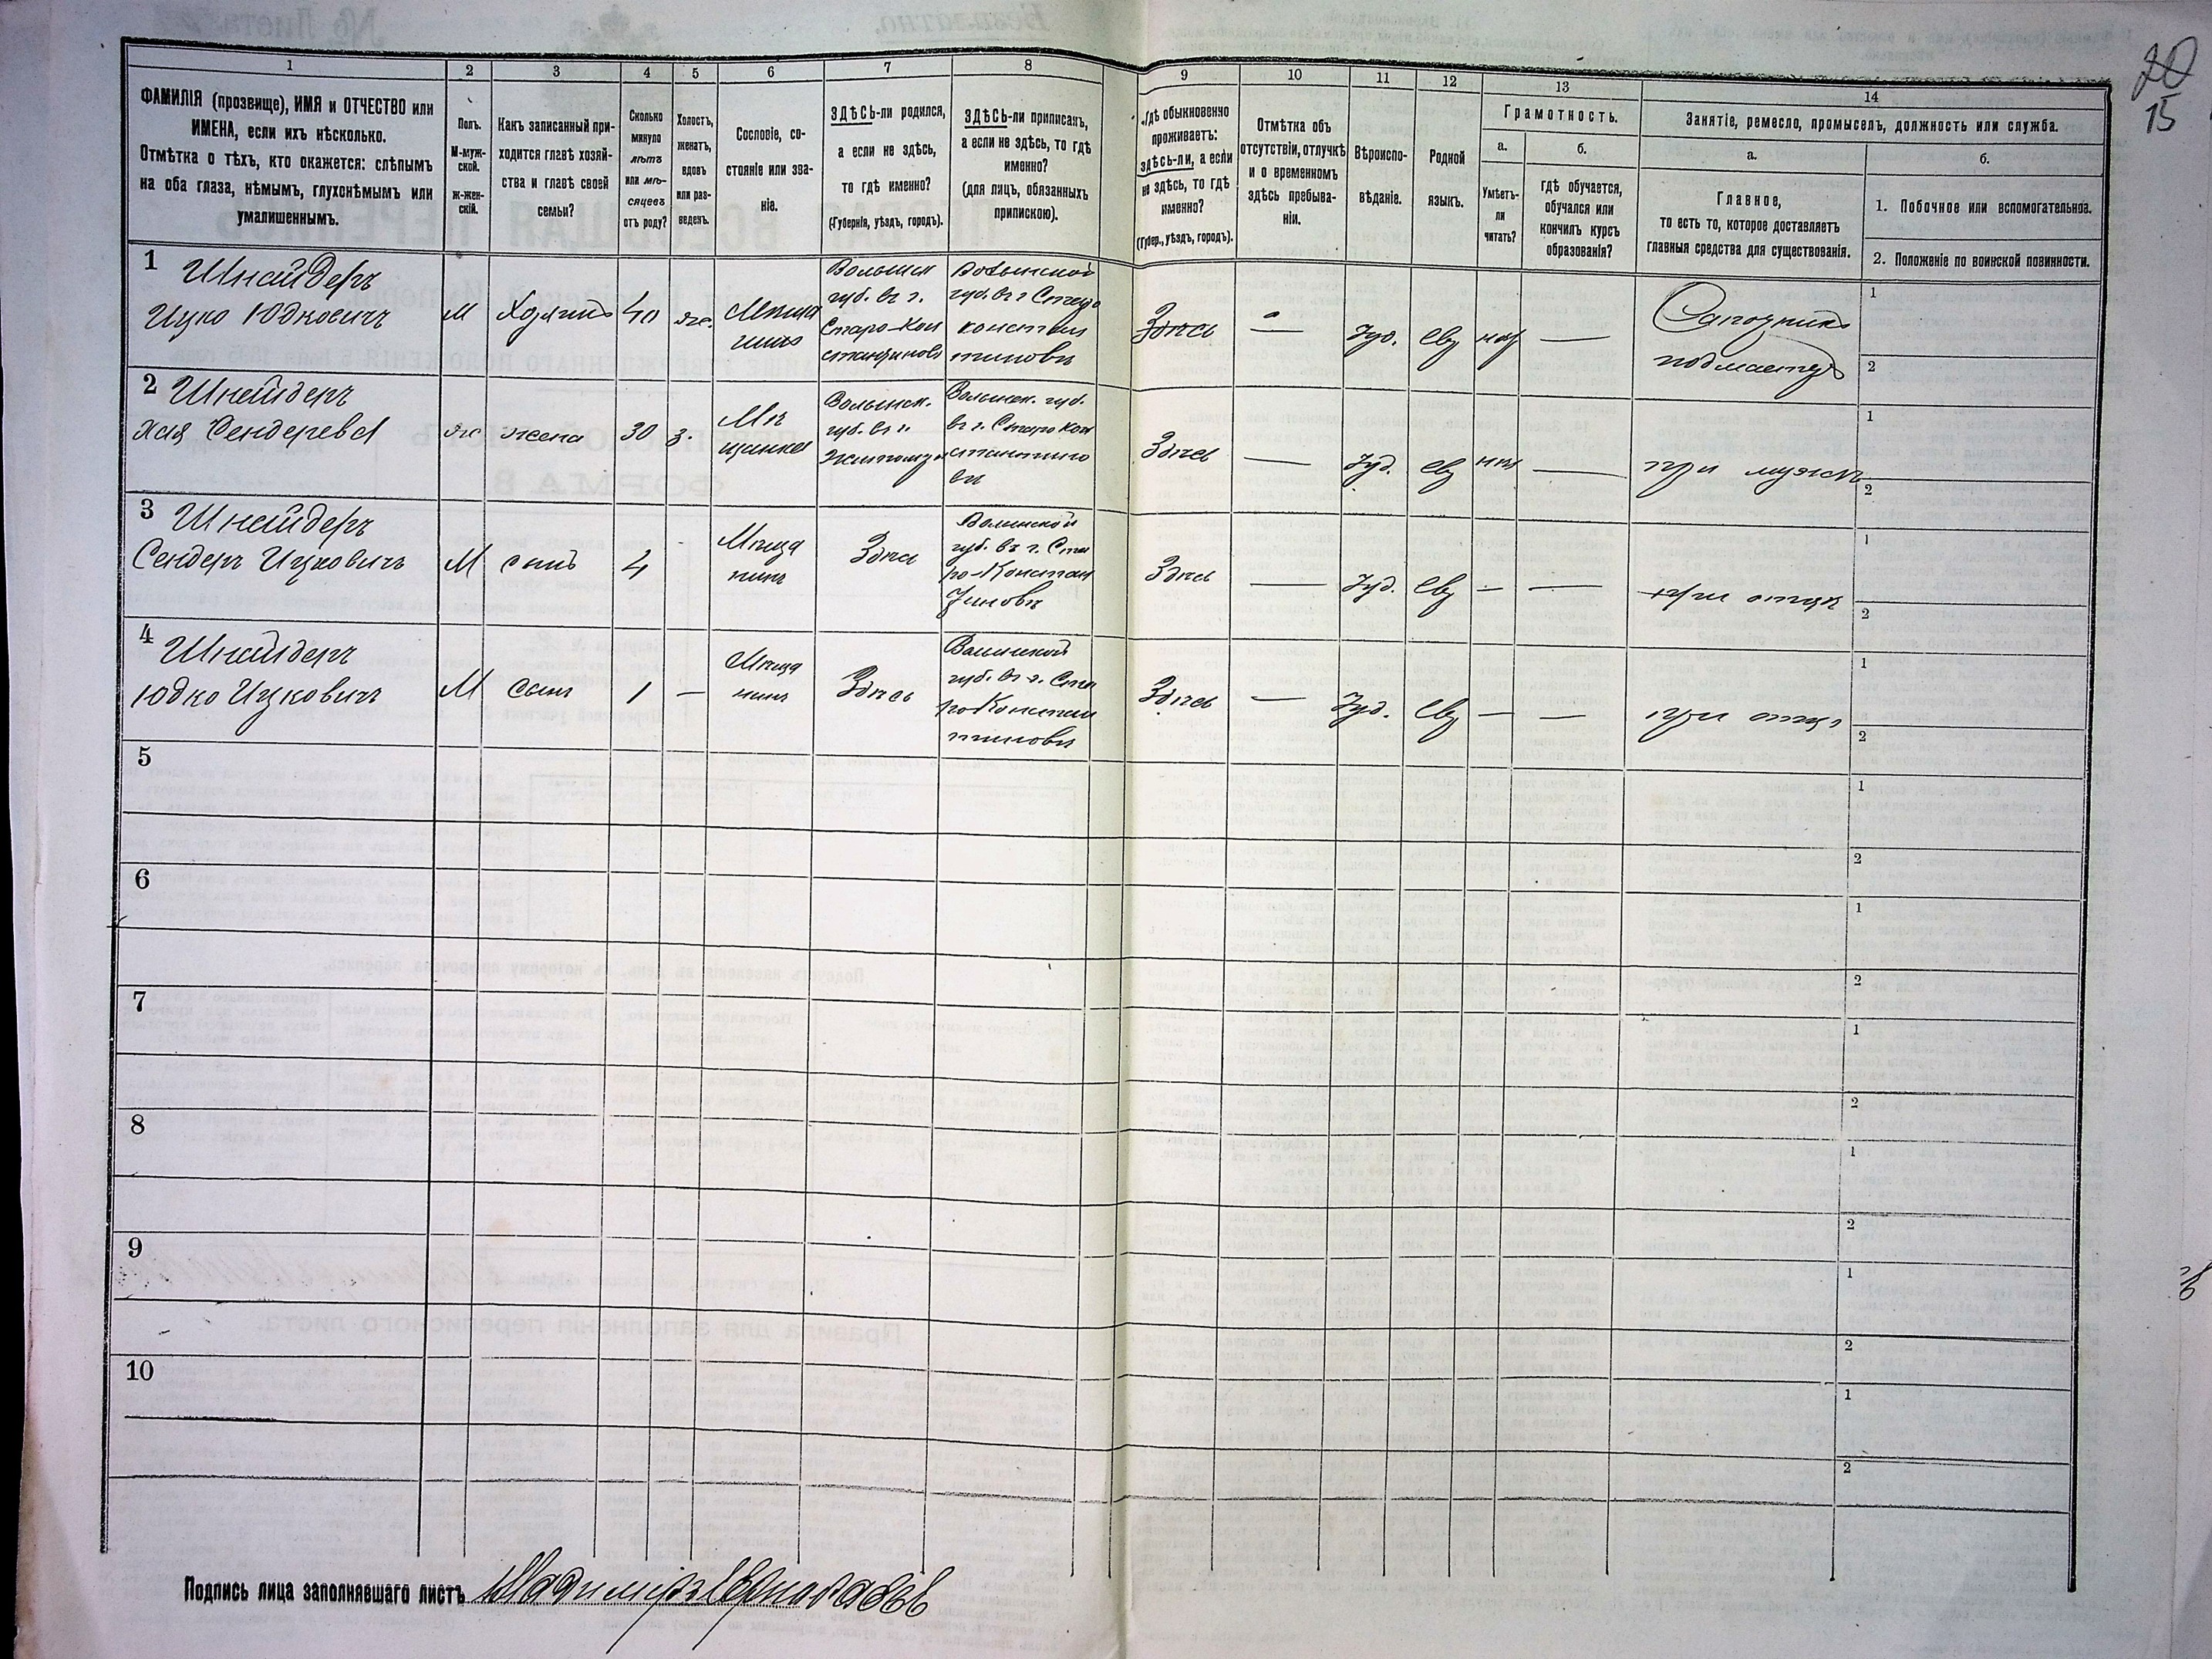 20
15
1
2
3
4
5
6
7
8
9
10
11
12
13
14
ФАМИЛІЯ (прозвище), ИМЯ и ОТЧЕСТВО или
ИМЕНА, если ихъ нѣсколько.
Отмѣтка о тѣхъ, кто окажется: слѣпымъ
на оба глаза, нѣмымъ, глухонѣмымъ или
умалишеннымъ.
Полъ.
М-муж-
ской.
ж-жен-
скій.
Какъ записанный при-
ходится главѣ хозяй-
ства и главѣ своей
семьи?
Сколько
минуло
лѣтъ
или мѣ-
сяцевъ
отъ роду?
Холостъ,
женатъ,
вдовъ
или раз-
веденъ.
Сословіе, со-
стояніе или зва-
ніе.
ЗДѢСЬ-ли родился,
а если не здѣсь,
то гдѣ именно?
(Губернія, уѣздъ, городъ).
ЗДѢСЬ-ли приписанъ,
а если не здѣсь, то гдѣ
именно?
(для лицъ, обязанныхъ
припискою).
Гдѣ обыкновенно
проживаетъ:
здѣсь-ли, а если
не здѣсь, то гдѣ
именно?
(Губер., уѣздъ, городъ).
Отмѣтка объ
отсутствіи, отлучкѣ
и о временномъ
здѣсь пребыва-
ніи.
Вѣроиспо-
вѣданіе.
Родной
языкъ.
Грамотность.
а.
Умѣетъ-
ли
читать?
б.
гдѣ обучается,
обучался или
кончилъ курсъ
образованія?
Занятіе, ремесло, промыселъ, должность или служба.
а.
Главное,
то есть то, которое доставляетъ
главныя средства для существованія.
б.
1. Побочное или вспомогательное.
2. Положеніе по воинской повинности.
1 Шнейдеръ
Ицко Юдковичъ
М
Хозяинъ
40
же.
Мѣща
нинъ
Волынск
губ. въ г.
Старо-Кон
стантиновѣ
Волынской
губ. въ г Старо
констан
тиновѣ
Здѣсь
—
Іуд.
Евр
нѣт
—
Сапожникъ
подмастер
1
2
2 Шнейдеръ
Хая Сендерева
ж
жена
30
з.
Мѣ
щанка
Волынск.
губ. въ г.
Житомірѣ
Волынск. губ.
въ г. Старо Кон
стантино
вѣ
Здѣсь
—
Іуд.
Евр
нѣт
—
при мужѣ
1
2
3 Шнейдеръ
Сендеръ Ицковичъ
М
сынъ
4
Мѣща
нинъ
Здѣсь
Волынской
губ. въ г. Ста
ро-Констан
тиновѣ
Здѣсь
—
Іуд.
Евр
—
—
при отцѣ
1
2
4 Шнейдеръ
Юдко Ицковичъ
М
сынъ
1
—
Мѣща
нинъ
Здѣсь
Волынской
губ. въ г. Ста
ро-Констан
тиновѣ
Здѣсь
—
Іуд.
Евр
—
—
при отцѣ
1
2
5
1
2
6
1
2
7
1
2
8
1
2
9
1
2
10
1
2
Подпись лица заполнявшаго листъ Владиміръ